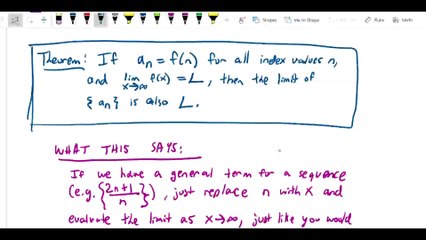 Shapes
Ink to Shape
Theorem: If aₙ = f(n) for all index values n,
and lim x→∞ f(x) = L, then the limit of
{aₙ} is also L.
WHAT THIS SAYS:
If we have a general term for a sequence
(e.g. {2n+1/n}), just replace n with x and
evaluate the limit as x→∞, just like you would